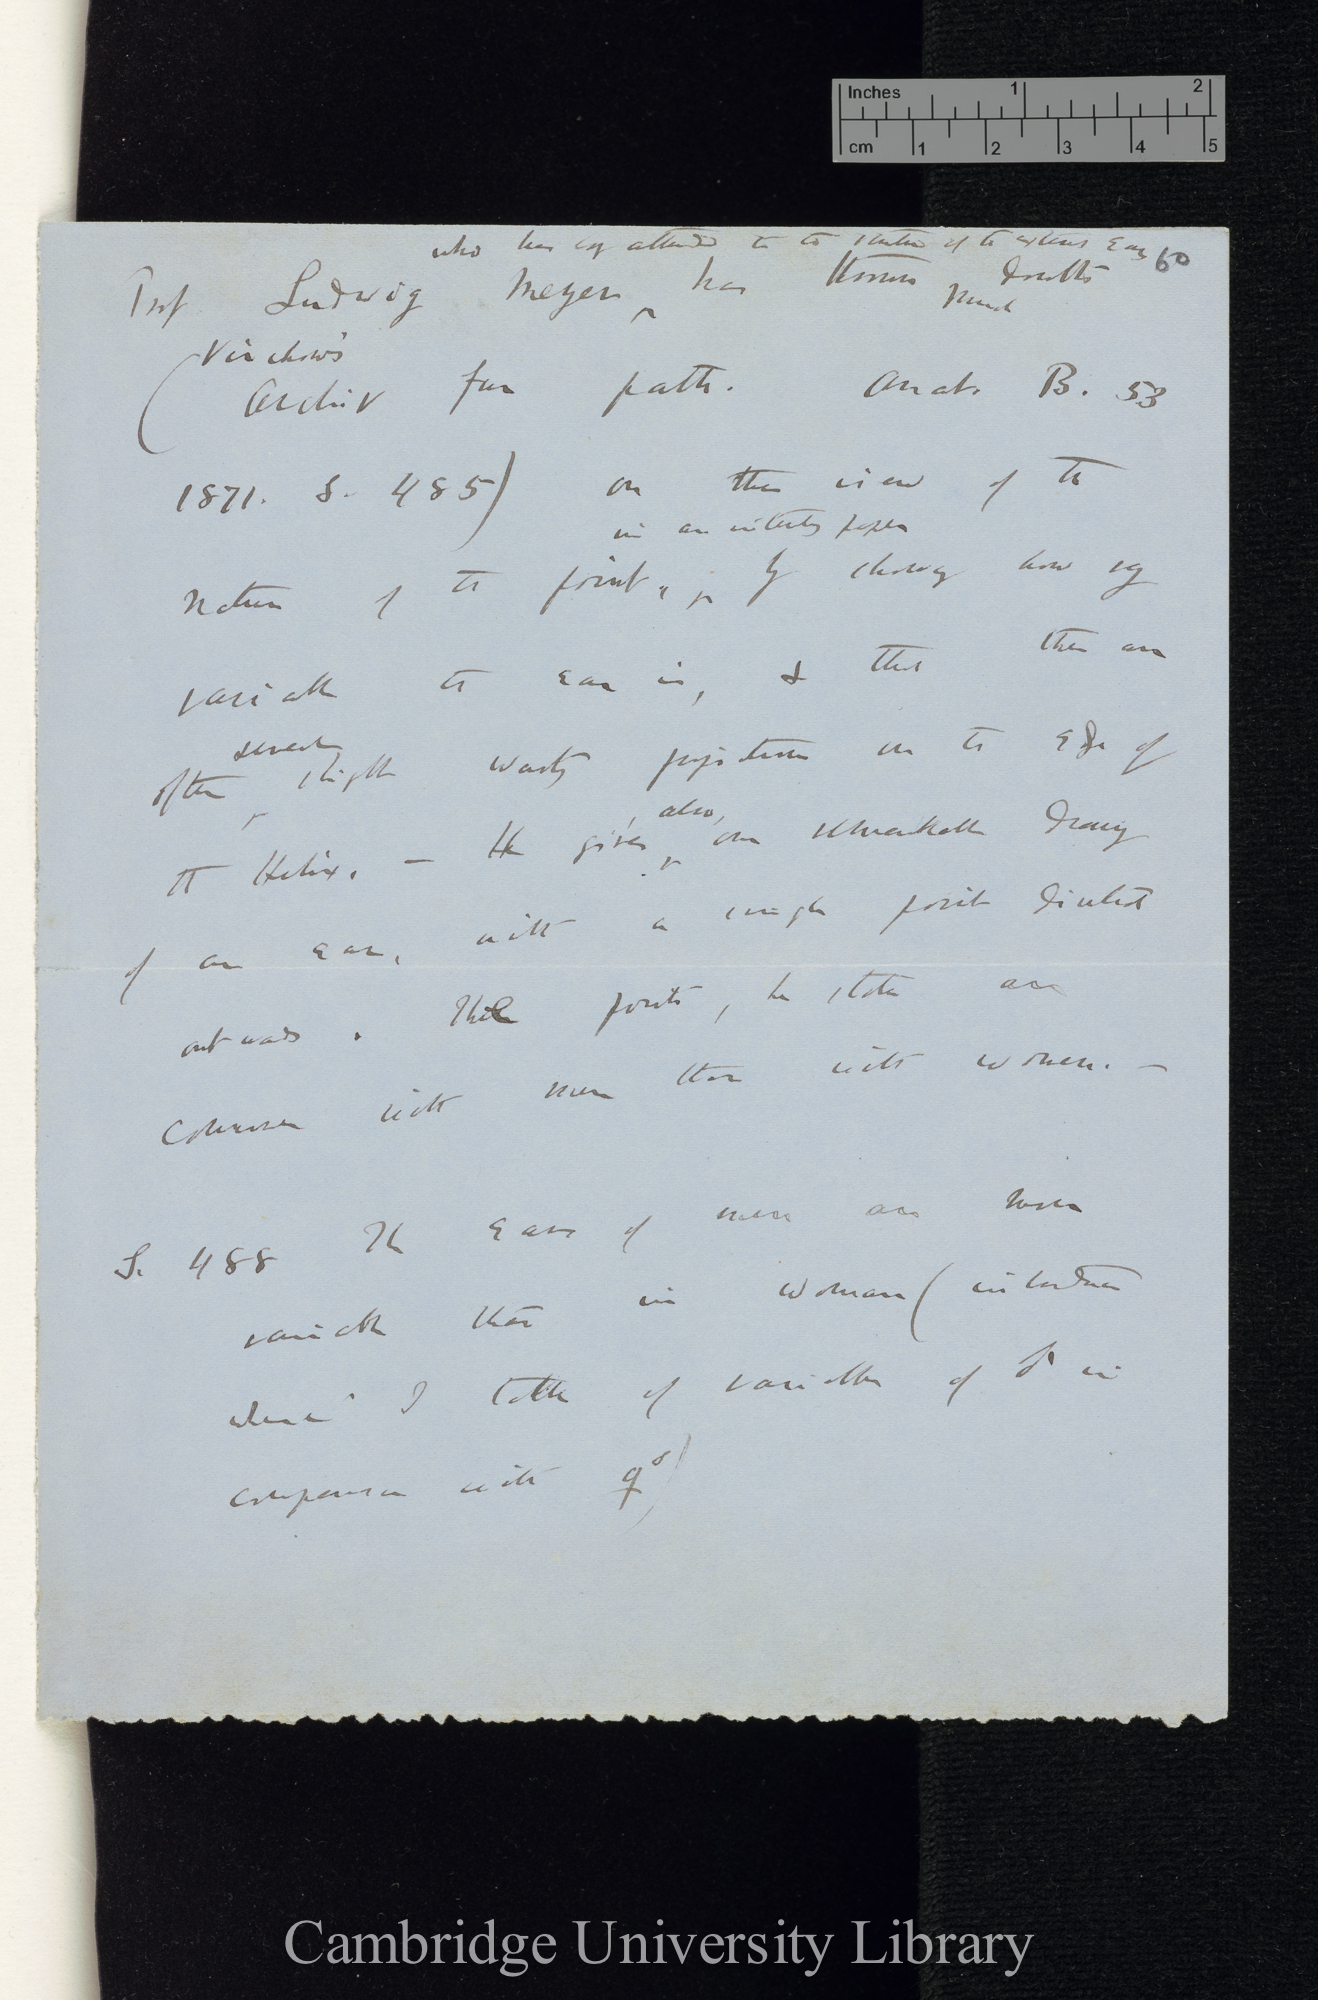 Inches 1 2
cm 1 2 3 4 5
60
who has attended to to structure of to external Ear
Prof Ludwig Meyer has thrown much doubt
(Virchow's
Archiv fur path. Anat. B. 53
1871. S. 485) on this view of to
in an interesting paper
nature of to points, by showing how
variable to ear is, & that there are
several
often slight warty projections on to edge of
also,
to Helix. — He gives one remarkable drawing
of an ear, with a single point directed
outwards. These points, he states are
commoner with men than with women. —
S. 488 The ears of men are more
variable than in woman (introduce
where I talk of variability of ♂ in
comparison with ♀s)
Cambridge University Library